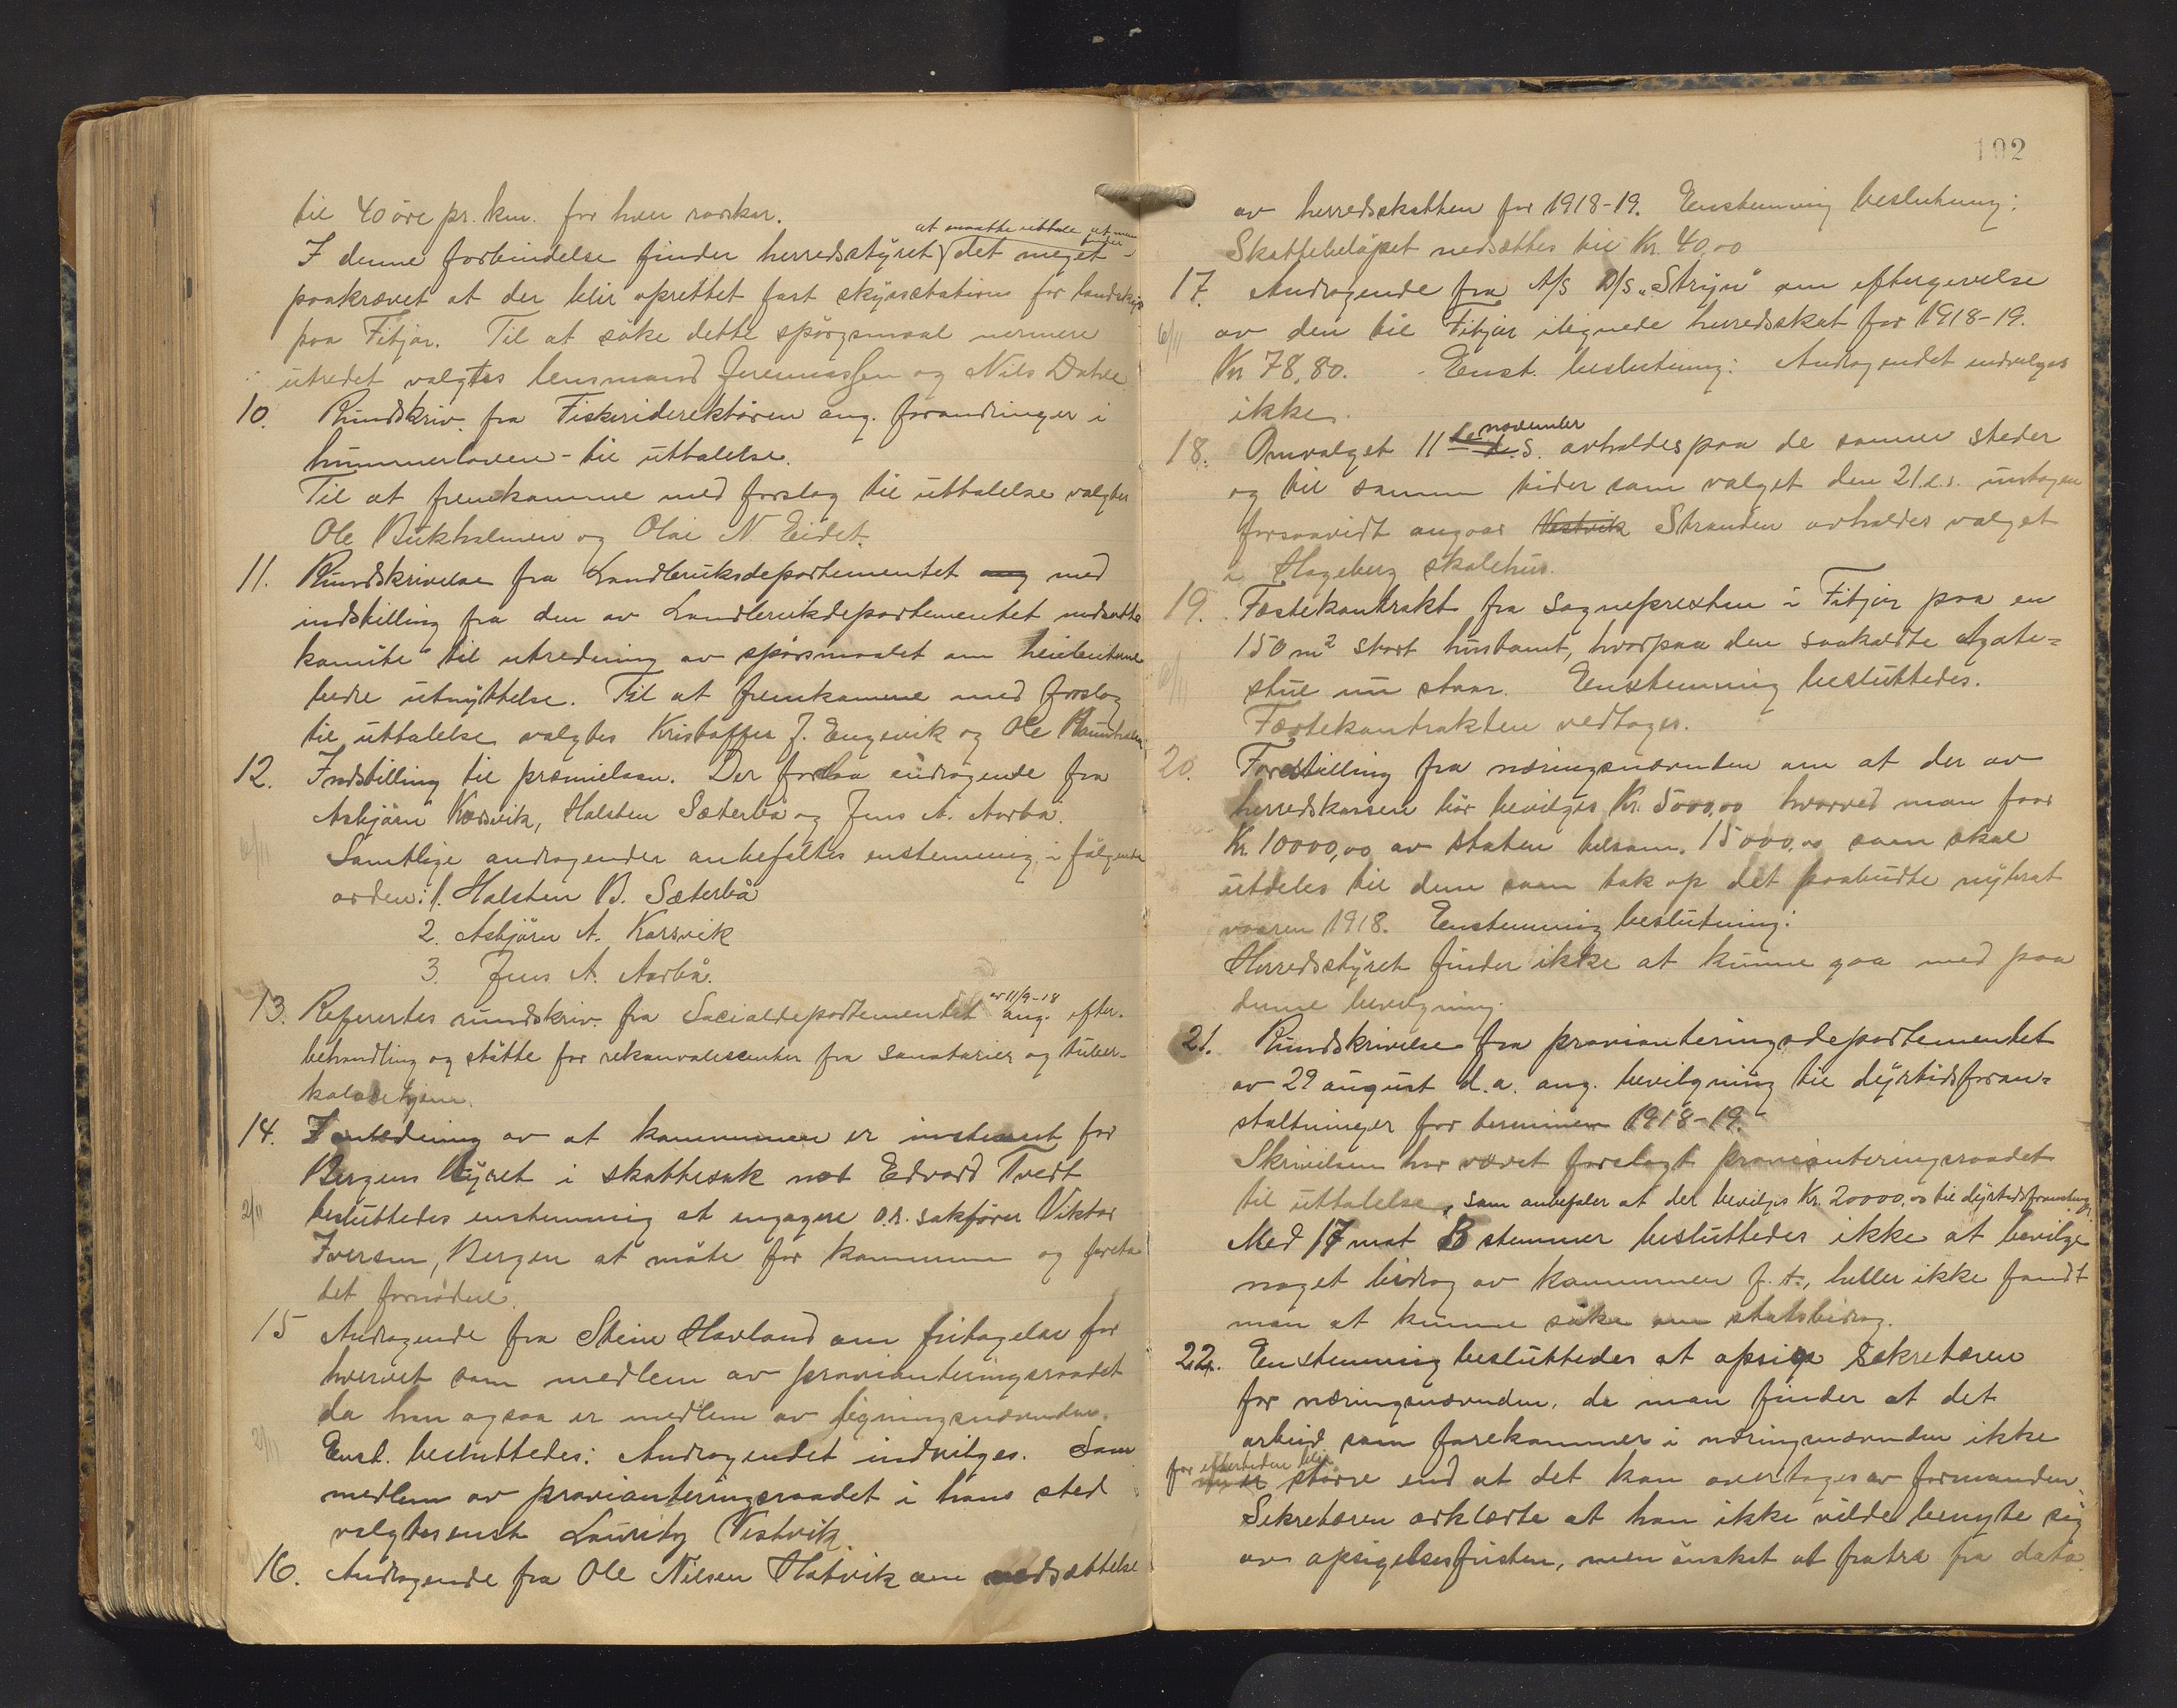 til 40 öre pr. km. for hver rorskar.
at maatte uttale at man finder
I denne forbindelse finder herredsstyret det meget
paakrævet at der blir oprettet fast skysstation for landskyds
paa Fitjar. Til at søke dette spørgsmaal nermere
utredet valgtes lensmand Jeremiassen og Nils Dahle
10. Rundskriv. fra Fiskeridirektören ang. forandringer i
hummerloven - til uttalelse.
Til at fremkomme med forslag til uttalelse valgtes
Ole Bukholmen og Olai N. Eidet.
11. Rundskrivelse fra Landbruksdepartementet ang med
indstilling fra den av Landbrukdepartementet nedsatte
komite til utredning av spörsmaalet om
bedre utnyttelse. Til at fremkomme med forslag
til uttalelse valgtes Kristoffer J. Engevik og Ole
12. Indstilling til præmielaan. Der forelaa andragende fra
Asbjörn Korsvik, Halsten Sæterbö og Jens A. Aarbö.
6/11
Samtlige andragender anbefaltes enstemmig i fölgende
orden: 1. Halsten B. Sæterbö
2. Asbjörn A. Korsvik
3. Jens A. Aarbö.
av 11/9-18
13. Refererte rundskriv. fra Socialdepartementet ang. efter-
behandling og stötte for rekonvalescenter fra sanatorier og tuber-
kulosehjem.
14. I anledning av at kommunen er instevnt for
Bergens byret i skattesak mot Edvard Tvedt
2/11
besluttedes enstemmig at engagere o.r. sakförer Viktor
Iversen, Bergen at möte for kommunen og foreta
det fornödne.
15 Andragende fra Steine Havland om fritagelse for
hvervet som medlem av provianteringsraadet
da han ogsaa er medlem av ligningsnævnden.
2/11
Enst. besluttedes: Andragendet indvilges. Som
medlem av provianteringsraadet i hans sted
valgtes enst Lauritz Vestvik.
16. Andragende fra Ole Nilsen Hatvik om nedsættelse
102
av herredsskatten for 1918-19. Enstemmig beslutning:
Skattebelöpet nedsættes til Kr. 40,00
17. Andragende fra A/S D/S "Stryn" om eftergivelse
6/11
av den til Fitjar ilignede herredsskat for 1918-19.
Kr 78,80. - Enst. beslutning: Andragendet indvilges
ikke.
november
18. Omvalget 11 te d.s. avholdes paa de samme steder
og til samme tider som valget den 21. d.s. undtagen
forsaavidt angaar Vestvik Stranden avholdes valget
i Hageberg skolehus.
19. Fæstekontrakt fra sogneprexten i Fitjar paa en
150 m² stort hustomt, hvorpaa den saakaldte Agate=
6/11
stue nu staar. Enstemmig besluttedes.
Fæstekontrakten vedtages.
20. Forestilling fra næringsnævnden om at der av
herredskassen bör bevilges Kr. 5000,00 hvorved man faar
Kr. 10000,00 av staten tilsam. 15000,00 som skal
utdeles til dem som tok op det paabudte nybrat
vaaren 1918. Enstemmig beslutning:
Herredsstyret finder ikke at kunne gaa med paa
denne bevilgning.
21. Rundskrivelse fra provianteringsdepartementet
av 29 august d.a. ang. bevilgning til dyrtidsforan=
staltninger for terminen 1918-19.
Skrivelsen har været forelagt provianteringsraadet
til uttalelse, som anbefaler at der bevilges Kr. 20000,00 til
Med 17 mot 3 stemmer besluttedes ikke at bevilge
noget bidrag av kommunen f. t., heller ikke fandt
man at kunne söke om statsbidrag.
22. Enstemmig besluttedes at opsige sekretæren
for næringsnævnden, da man finder at det
arbeid som forekommer i næringsnævnden ikke
for eftertiden blir
er större end at det kan overtages av formanden.
Sekretæren erklærte at han ikke vilde benytte sig
av opsigelsesfristen, men önsket at fratre fra dato.